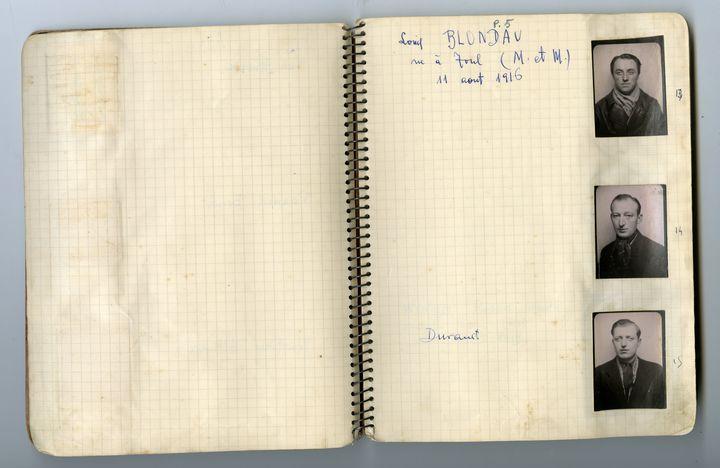 P. 5
Louis BLONDAU
né à Toul (M. et M.)
11 aout 1916
13
14
Durand
15